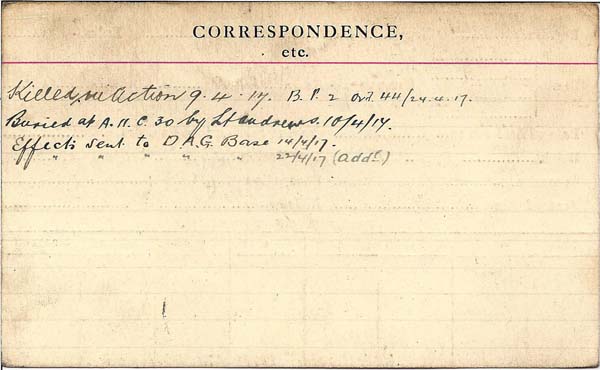 CORRESPONDENCE,
etc.
Killed in Action 9.4.17. B.P.2 Ord. 44/24.4.17.
Buried at A.11.C.30 by Lt Andrews. 10/4/17.
Effects sent to D.A.G. Base 14/4/17.
" " " " " 22/4/17 (addl)